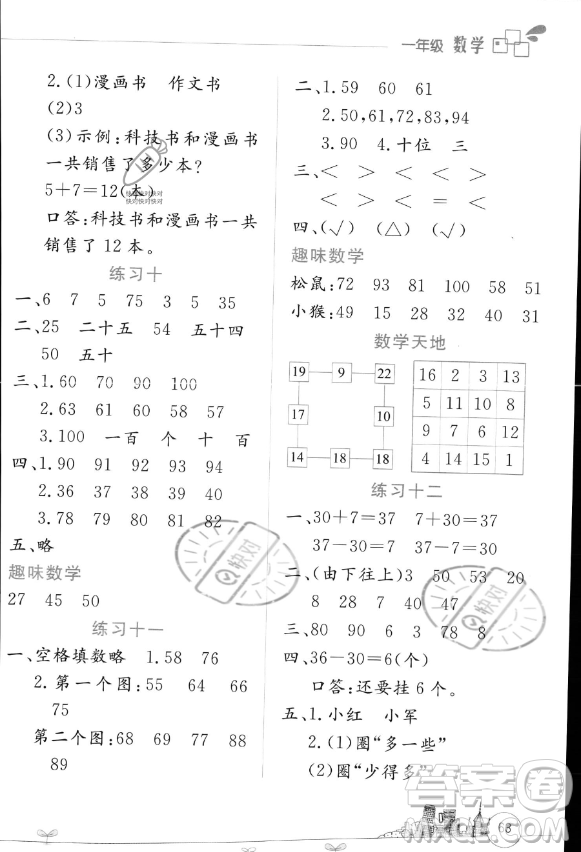 一年级 数学
2.(1)漫画书 作文书
(2)3
(3)示例:科技书和漫画书
一共销售了多少本?
5+7=12(本)
口答:科技书和漫画书一共
销售了 12 本。
练习十
一、6 7 5 75 3 5 35
二、25 二十五 54 五十四
50 五十
三、1.60 70 90 100
2.63 61 60 58 57
3.100 一百 个 十 百
四、1.90 91 92 93 94
2.34 37 38 39 40
3.78 79 80 81 82
五、略
趣味数学
27 45 50
练习十一
一、空格填数略 1.58 76
2.第一个图:55 64 66
75
第二个图:68 69 77 88
89
二、1.59 60 61
2.50,61,72,83,94
3.90 4.十位 三
三、< < > <
> < = <
四、(√) (△) (√)
趣味数学
松鼠:72 93 81 100 58 51
小猴:49 15 28 32 31 45
数学天地
19 9 22
17 10
14 18 18
16 2 3 13
5 11 10 8
9 7 6 12
4 14 15 1
练习十二
一、30+7=37 7+30=37
37-30=7 37-7=30
二、(由下往上)3 50 53 20
8 28 7 40 47
三、61 9 8 3
四、36-30=6(个)
口答:还要挂 6 个。
五、1.小红 小军
2.(1)圈“多一些”
(2)圈“少得多”
快对快对快对
快对快对快对
快对
快对
答案圈
MXQE.COM
68